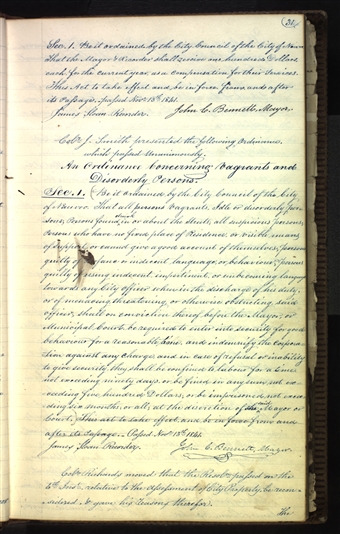 Sec. 1. Be it ordained by the City Council of the City of Nauvoo
That the Mayor & Recorder shall receive one hundred Dollars
each for the current year as a Compensation for their Services.
This Act to take effect, and be in force from and after
its Passage. Passed Nov. 13th 1841.
James Sloan Recorder. John C. Bennett, Mayor.
Colr. J. Smith presented the following Ordinance,
which passed Unanimously.
An Ordinance Concerning Vagrants and
Disorderly Persons.
Sec. 1. Be it Ordained by the City Council of the City
of Nauvoo, That all persons Vagrants, Idle or disorderly per-
sons, Persons found drunk in or about the Streets, all suspicious persons,
Persons who have no fixed place of Residence, or visible means
of Support, or cannot give a good account of themselves, persons
guilty of profane or indecent language, or behaviour, persons
guilty of using indecent impertinent, or unbecoming language
towards any City Officer when in the discharge of his duty,
or of menacing threatening or otherwise obstructing said
officer, shall on conviction thereof before the Mayor, or
Municipal Court, be required to enter into security for good
behaviour for a reasonable time, and indemnify the corpora-
tion against any charge, and in case of refusal or inability
to give security, they shall be confined to labour for a time
not exceeding ninety days, or be fined in any sum not ex-
ceeding five hundred Dollars, or be imprisoned not excee-
ding six months, or all, at the discretion of the said Mayor or
Court. This act to take effect, and be in force, from and
after its passage.— Passed Nov. 13th 1841.
James Sloan Recorder. John C. Bennett, Mayor.
Colr. Richards moved that the Resoln. passed on the
relative to the assessment of City Property, be recon-
sidered, & gave his reasons therefor.
The